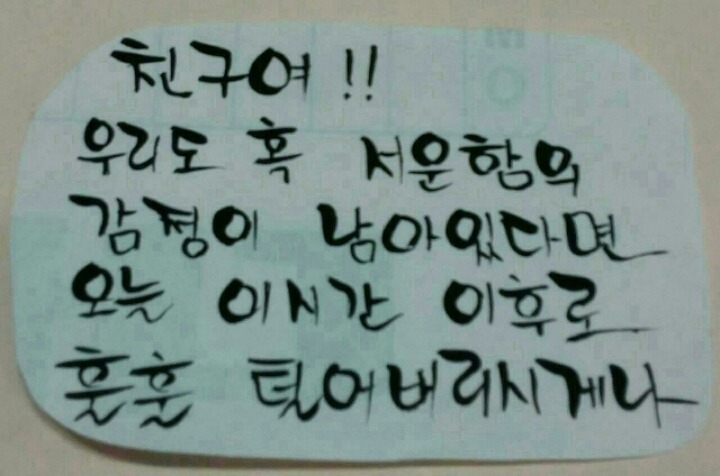 친구여!!
우리도 혹 서운함의
감정이 남아있다면
오늘 이시간 이후로
훌훌 털어버리시게나